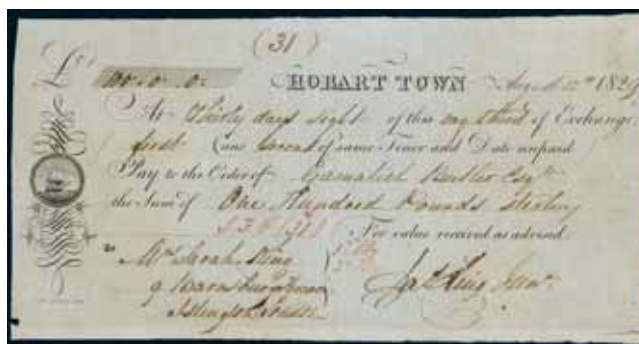 (31)
£ 100.0.0. HOBART TOWN August 1829
At Thirty days sight of this my third of Exchange
first and second of same Tenor and Date unpaid
Pay to the Order of Gamaliel Butler Esqre
the Sum of One Hundred Pounds sterling
For value received as advised.
To
Mrs Sarah King
9
Islington London
King